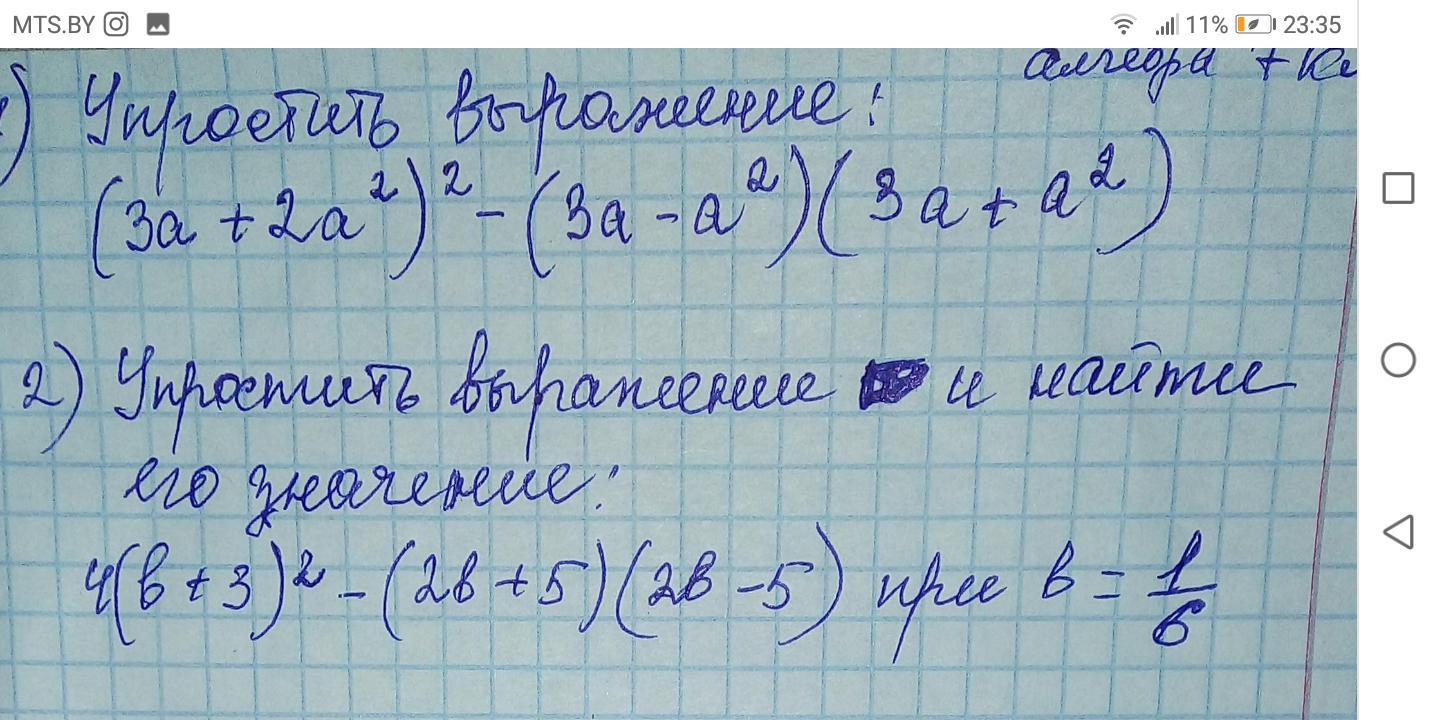 MTS.BY 11% 23:35
алгебра +
) Упростить выражение:
(3a + 2a²)² - (3a - a²)(3a + a²)
2) Упростить выражение и найти
его значение:
4(b + 3)² - (2b + 5)(2b - 5) при b = 1/6